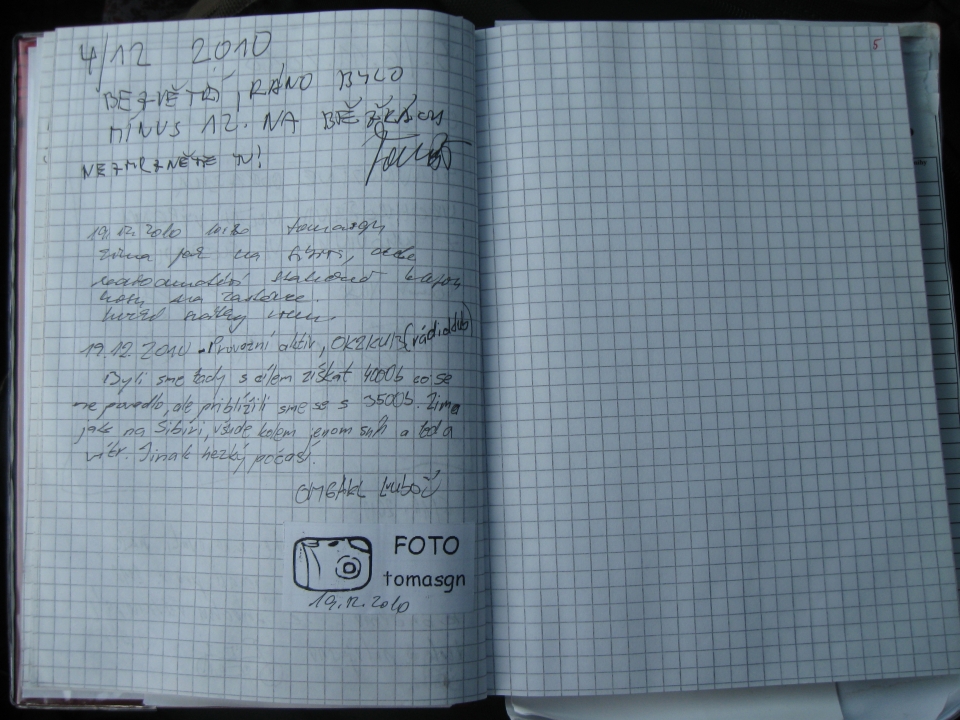 4/12 2010
BEZVĚTŘÍ, RÁNO BYLO
MÍNUS 12. NA BĚŽKÁCH
NEZMRZNĚTE TU!
19.12.2010 tomasgn
zima jak na Sibiři,
nosy na
19.12.2010 - Provozní aktiv, OK2KUB (rádioklub)
Byli sme tady s cílem získat 4000b co se
ne povedlo, ale přiblížili sme se s 3500b. Zima
jak na Sibiři, všude kolem jenom sníh a led a
vítr. Jinak hezký počasí.
Luboš
FOTO
tomasgn
19.12.2010
5